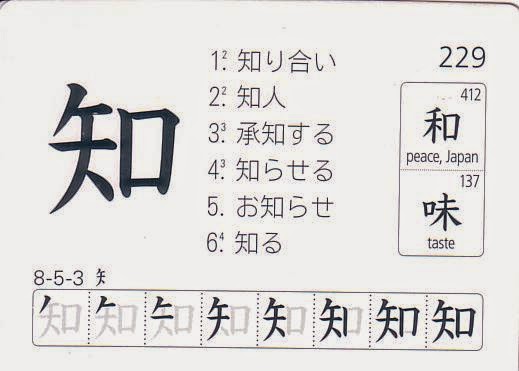 知
1.² 知り合い
2.² 知人
3.³ 承知する
4.³ 知らせる
5. お知らせ
6.⁴ 知る
229
412
和
peace, Japan
137
味
taste
8-5-3 矢
知 知 知 知 知 知 知 知